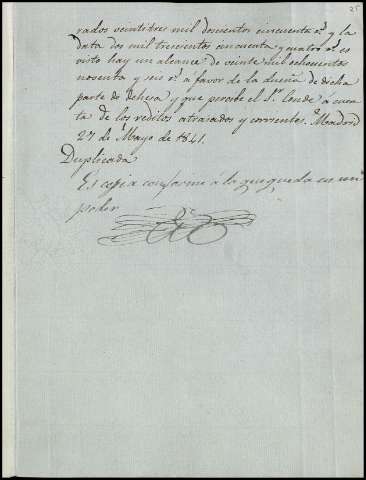 25
rados veintitres mil doscientos cincuenta rˢ y la
data dos mil trescientos cincuenta y quatro rˢ es
visto hay un alcance de veinte mil ochocientos
noventa y seis rˢ a favor de la dueña de dicha
parte de dehesa y que percibe el Sʳ Conde á cuen
ta de los reditos atrasados y corrientes. Madrid
27 de Mayo de 1841.
Duplicada
Es copia conforme á la que queda en mi
poder